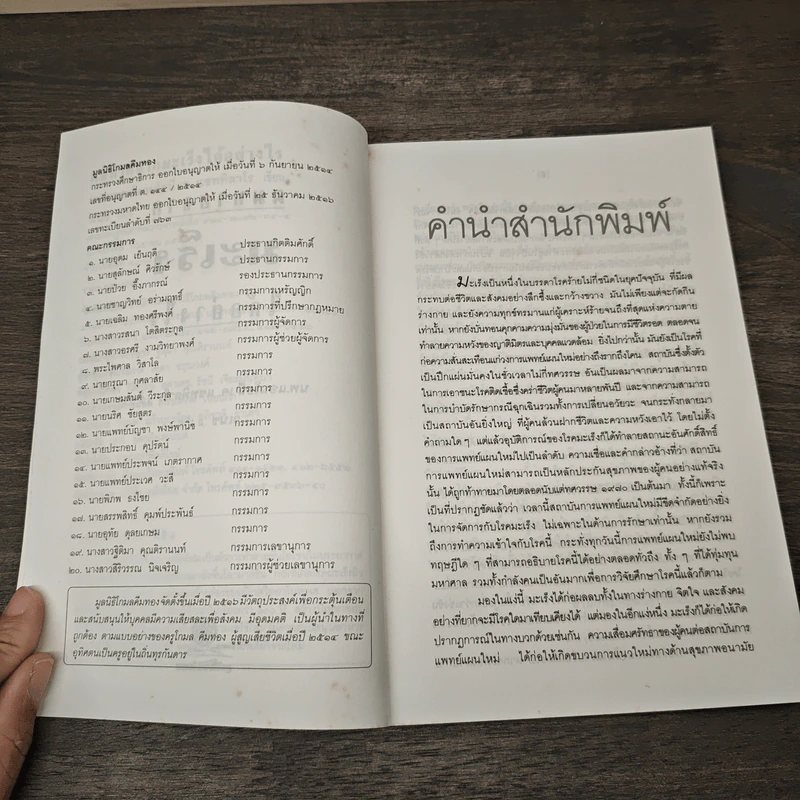 มูลนิธิโกมลคีมทอง
กระทรวงศึกษาธิการ ออกใบอนุญาตให้ เมื่อวันที่ ๖ กันยายน ๒๕๑๔
เลขที่อนุญาตที่ ต. ๑๔๔ / ๒๕๑๔
กระทรวงมหาดไทย ออกใบอนุญาตให้ เมื่อวันที่ ๒๕ ธันวาคม ๒๕๑๖
เลขทะเบียนลำดับที่ ๗๖๓
คณะกรรมการ
๑. นายอุดม เย็นฤดี ประธานกิตติมศักดิ์
๒. นายสุลักษณ์ ศิวรักษ์ ประธานกรรมการ
๓. นายป๋วย อึ๊งภากรณ์ รองประธานกรรมการ
๔. นายชาญวิทย์ อร่ามฤทธิ์ กรรมการเหรัญญิก
๕. นายเฉลิม ทองศรีพงศ์ กรรมการที่ปรึกษากฎหมาย
๖. นางสาวรสนา โตสิตระกูล กรรมการผู้จัดการ
๗. นางสาวอรศรี งามวิทยาพงศ์ กรรมการผู้ช่วยผู้จัดการ
๘. พระไพศาล วิสาโล กรรมการ
๙. นายกรุณา กุศลาสัย กรรมการ
๑๐. นายเกษมสันต์ วีระกูล กรรมการ
๑๑. นายนริศ ชัยสูตร กรรมการ
๑๒. นายแพทย์บัญชา พงษ์พานิช กรรมการ
๑๓. นายประกอบ คุปรัตน์ กรรมการ
๑๔. นายแพทย์ประพจน์ เภตรากาศ กรรมการ
๑๕. นายแพทย์ประเวศ วะสี กรรมการ
๑๖. นายพิภพ ธงไชย กรรมการ
๑๗. นายสรรพสิทธิ์ คุมพ์ประพันธ์ กรรมการ
๑๘. นายอุทัย ดุลยเกษม กรรมการ
๑๙. นางสาวฐิติมา คุณติรานนท์ กรรมการเลขานุการ
๒๐. นางสาวสิริวรรณ นิจเจริญ กรรมการผู้ช่วยเลขานุการ
มูลนิธิโกมลคีมทองจัดตั้งขึ้นเมื่อปี ๒๕๑๖ มีวัตถุประสงค์เพื่อกระตุ้นเตือน
และสนับสนุนให้บุคคลมีความเสียสละเพื่อสังคม มีอุดมคติ เป็นผู้นำในทางที่
ถูกต้อง ตามแบบอย่างของครูโกมล คีมทอง ผู้สูญเสียชีวิตเมื่อปี ๒๕๑๔ ขณะ
อุทิศตนเป็นครูอยู่ในถิ่นทุรกันดาร
คำนำสำนักพิมพ์
มะเร็งเป็นหนึ่งในบรรดาโรคร้ายไม่กี่ชนิดในยุคปัจจุบัน ที่มีผล
กระทบต่อชีวิตและสังคมอย่างลึกซึ้งและกว้างขวาง มันไม่เพียงแต่จะกัดกิน
ร่างกาย และยังความทุกข์ทรมานแก่ผู้เคราะห์ร้ายจนถึงที่สุดแห่งความตาย
เท่านั้น หากยังบั่นทอนคุกคามความมุ่งมั่นของผู้ป่วยในการมีชีวิตรอด ตลอดจน
ทำลายความหวังของญาติมิตรและบุคคลแวดล้อม ยิ่งไปกว่านั้น มันยังเป็นโรคที่
ก่อความสั่นสะเทือนแก่วงการแพทย์แผนใหม่อย่างถึงรากถึงโคน สถาบันซึ่งตั้งตัว
เป็นปึกแผ่นมั่นคงในชั่วเวลาไม่กี่ทศวรรษ อันเป็นผลมาจากความสามารถ
ในการเอาชนะโรคติดเชื้อซึ่งคร่าชีวิตผู้คนมาหลายพันปี และจากความสามารถ
ในการบำบัดรักษากรณีฉุกเฉินรวมทั้งการเปลี่ยนอวัยวะ จนกระทั่งกลายมา
เป็นสถาบันอันยิ่งใหญ่ ที่ผู้คนล้วนฝากชีวิตและความหวังเอาไว้ โดยไม่ตั้ง
คำถามใด ๆ แต่แล้วอุบัติการณ์ของโรคมะเร็งก็ได้ทำลายสถานะอันศักดิ์สิทธิ์
ของการแพทย์แผนใหม่ไปเป็นลำดับ ความเชื่อและคำกล่าวอ้างที่ว่า สถาบัน
การแพทย์แผนใหม่สามารถเป็นหลักประกันสุขภาพของผู้คนอย่างแท้จริง
นั้น ได้ถูกท้าทายมาโดยตลอดนับแต่ทศวรรษ ๑๙๗๐ เป็นต้นมา ทั้งนี้ก็เพราะ
เป็นที่ปรากฏชัดแล้วว่า เวลานี้สถาบันการแพทย์แผนใหม่มีขีดจำกัดอย่างยิ่ง
ในการจัดการกับโรคมะเร็ง ไม่เฉพาะในด้านการรักษาเท่านั้น หากยังรวม
ถึงการทำความเข้าใจกับโรคนี้ กระทั่งทุกวันนี้การแพทย์แผนใหม่ยังไม่พบ
ทฤษฎีใด ๆ ที่สามารถอธิบายโรคนี้ได้อย่างตลอดทั่วถึง ทั้ง ๆ ที่ได้ทุ่มทุน
มหาศาล รวมทั้งกำลังคนเป็นอันมากเพื่อการวิจัยศึกษาโรคนี้แล้วก็ตาม
มองในแง่นี้ มะเร็งได้ก่อผลลบทั้งในทางร่างกาย จิตใจ และสังคม
อย่างที่ยากจะมีโรคใดมาเทียบเคียงได้ แต่มองในอีกแง่หนึ่ง มะเร็งก็ได้ก่อให้เกิด
ปรากฏการณ์ในทางบวกด้วยเช่นกัน ความเสื่อมศรัทธาของผู้คนต่อสถาบันการ
แพทย์แผนใหม่ ได้ก่อให้เกิดขบวนการแนวใหม่ทางด้านสุขภาพอนามัย